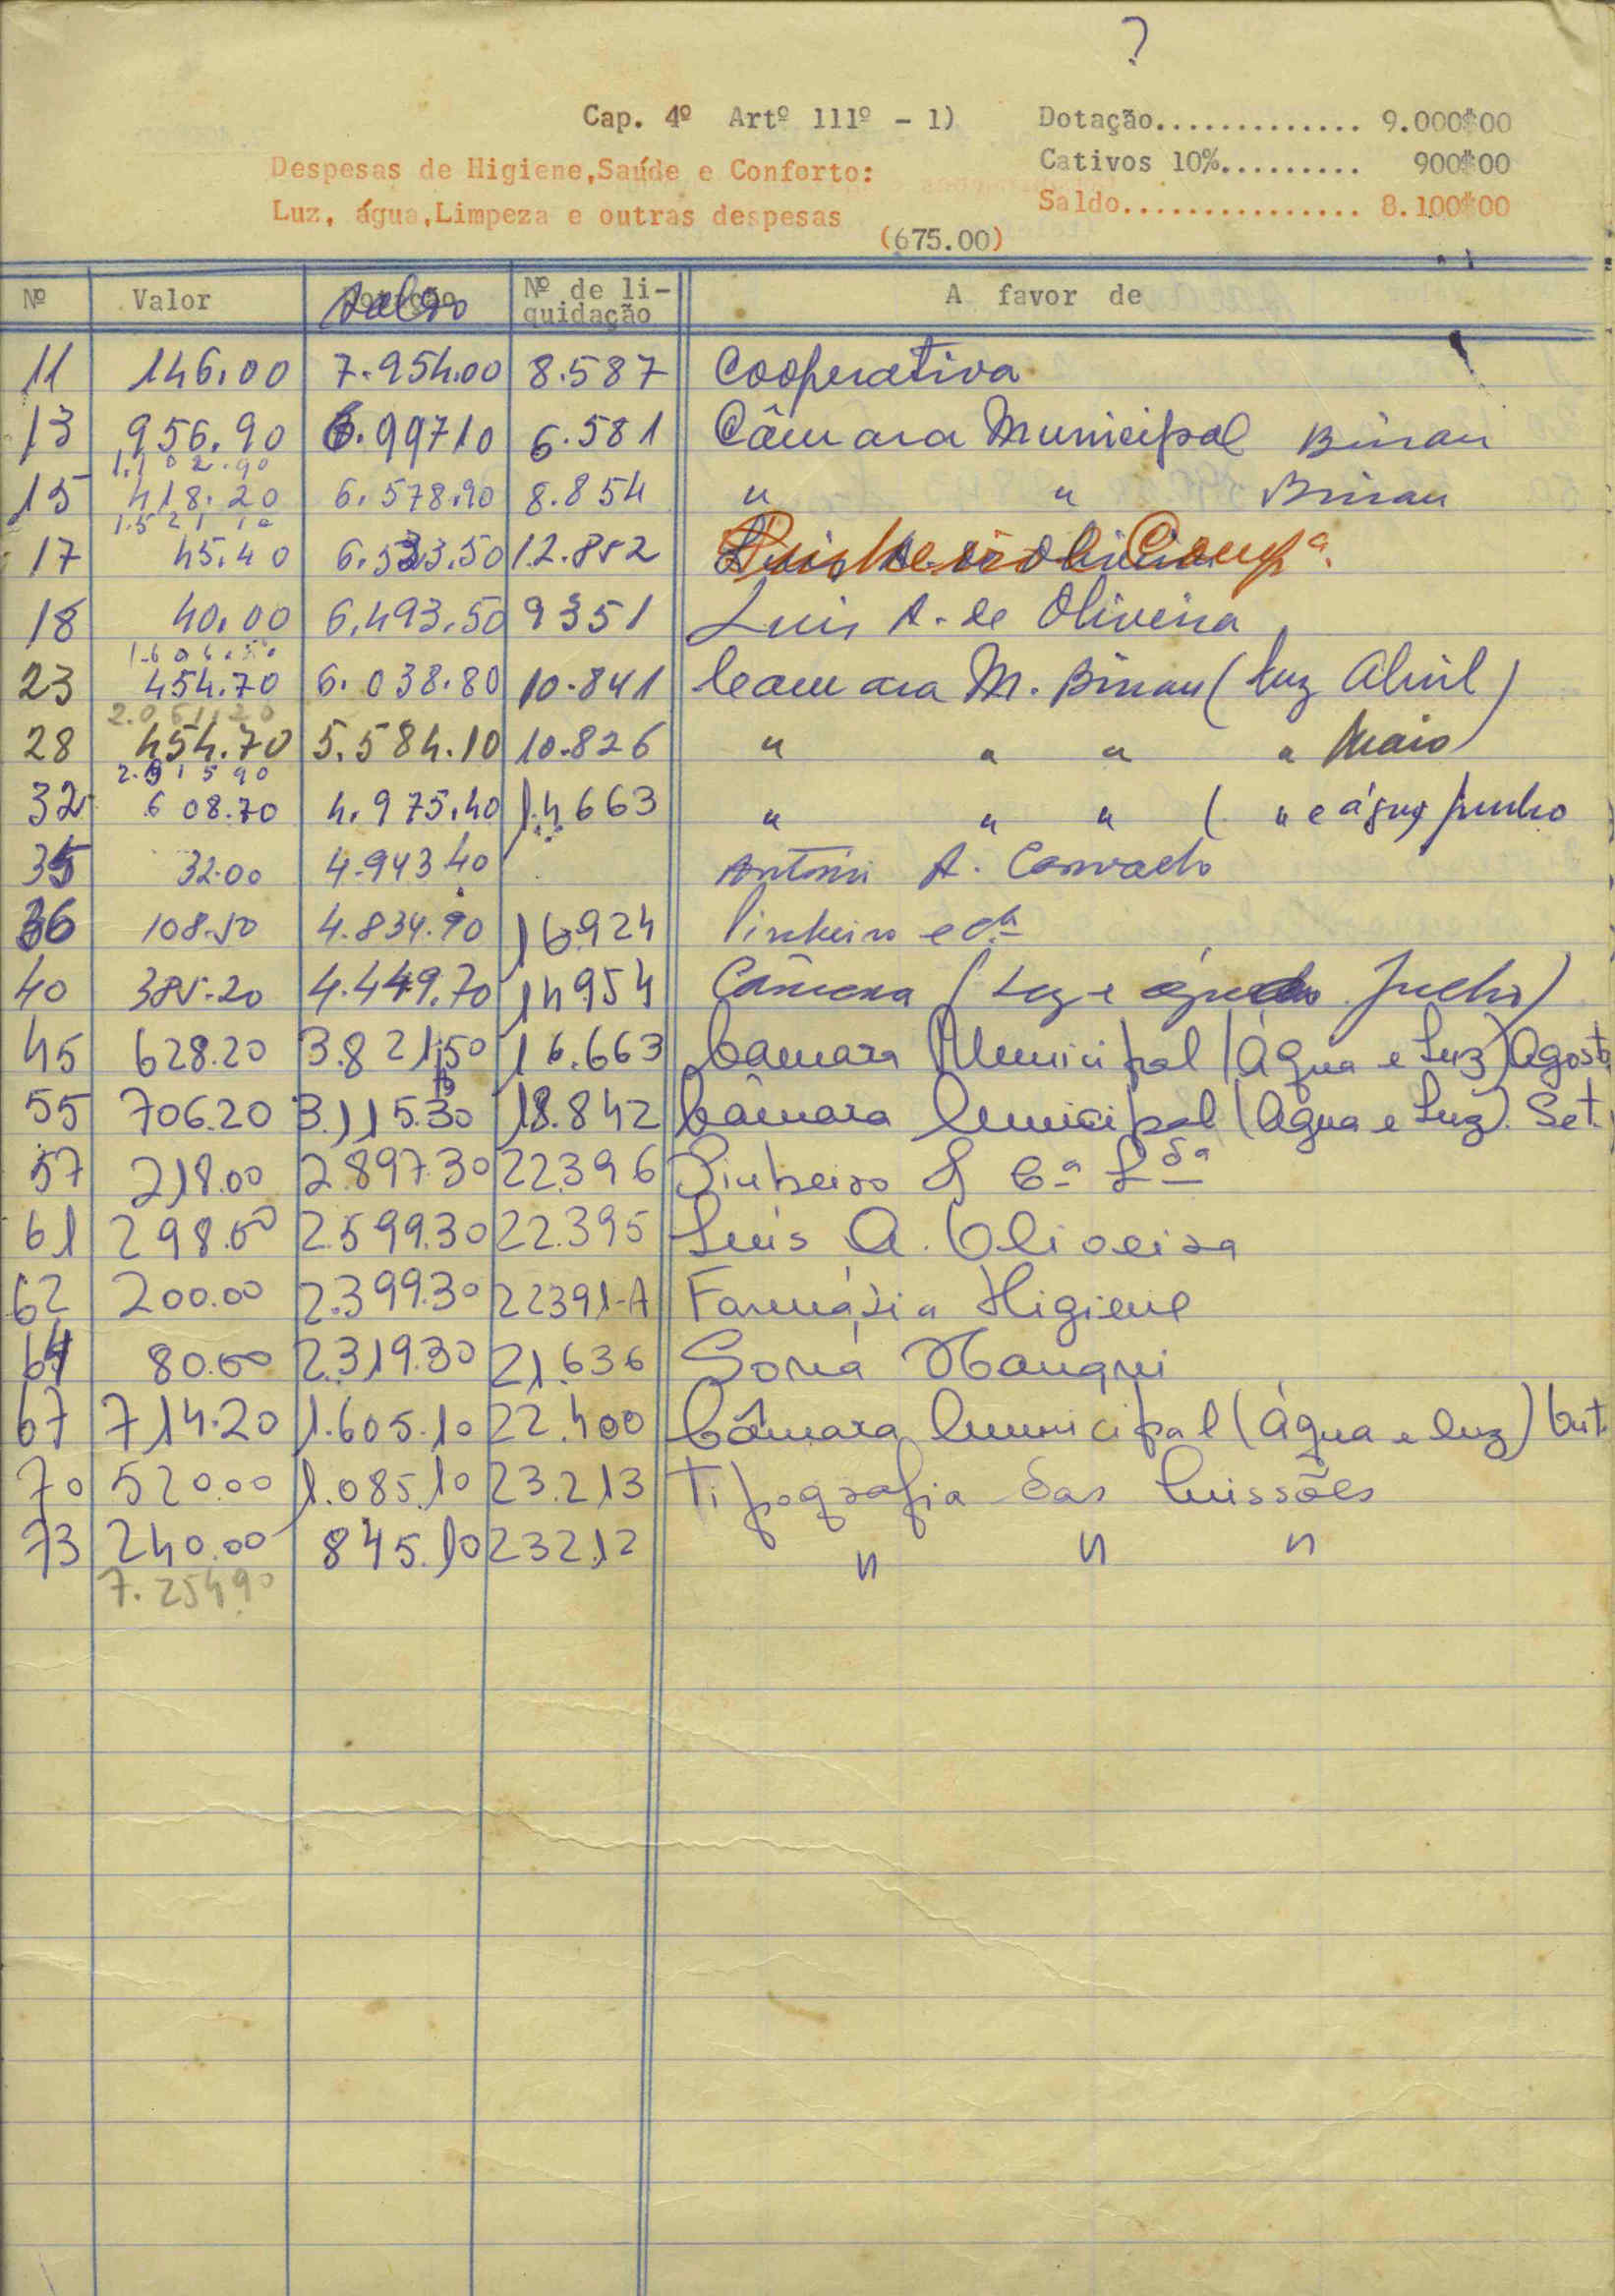 ?
Cap. 4º Artº 111º - 1) Dotação............. 9.000$00
Cativos 10%......... 900$00
Despesas de Higiene,Saúde e Conforto:
Saldo............... 8.100$00
Luz, água,Limpeza e outras despesas
(675.00)
Nº Valor Saldo Nº de li-quidação A favor de
11 146.00 7.954.00 8.587 Cooperativa
13 956.90 6.99710 6.581 Câmara Municipal Bissau
1.102.90
15 418.20 6.578.90 8.854 " " Bissau
1.521 10
17 45.40 6.533.50 12.852
18 40.00 6.493.50 9351 Luis A. de Oliveira
1.606.50
23 454.70 6.038.80 10.841 Camara M. Bissau (luz Abril)
2.061.20
28 454.70 5.584.10 10.826 " " " " Maio)
2.515 90
32 608.70 4.975.40 14663 " " " ( " e água Junho
35 32.00 4.943 40 António A. Carvalho
36 108.50 4.834.90 16924 Pinheiro e Cª
40 385.20 4.449.70 14954 Câmara (Luz e água Julho)
45 628.20 3.821.50 16.663 Câmara Municipal (Água e Luz) Agost.
55 706.20 3.115.30 18.842 Câmara Municipal (Água e Luz). Set.
57 218.00 2.897.30 22.396 Pinheiro & Cª Ldª
61 298.00 2.599.30 22.395 Luís A. Oliveira
62 200.00 2.399.30 22391-A Farmácia Higiene
64 80.00 2.319.30 21.636 Soná
67 714.20 1.605.10 22.400 Câmara Municipal (Água e luz) Out.
70 520.00 1.085.10 23.213 Tipografia das Missões
73 240.00 845.10 23212 " " "
7.254.90